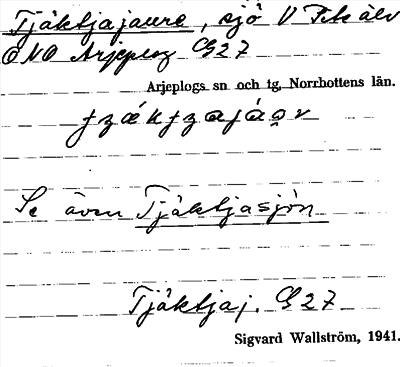 Tjäktjajaure, sjö V Pite älv
ONO Arjeplog G27
Arjeplogs sn och tg, Norrbottens län.
Se även Tjäktjasjön
Tjäktjaj. G27
Sigvard Wallström, 1941.